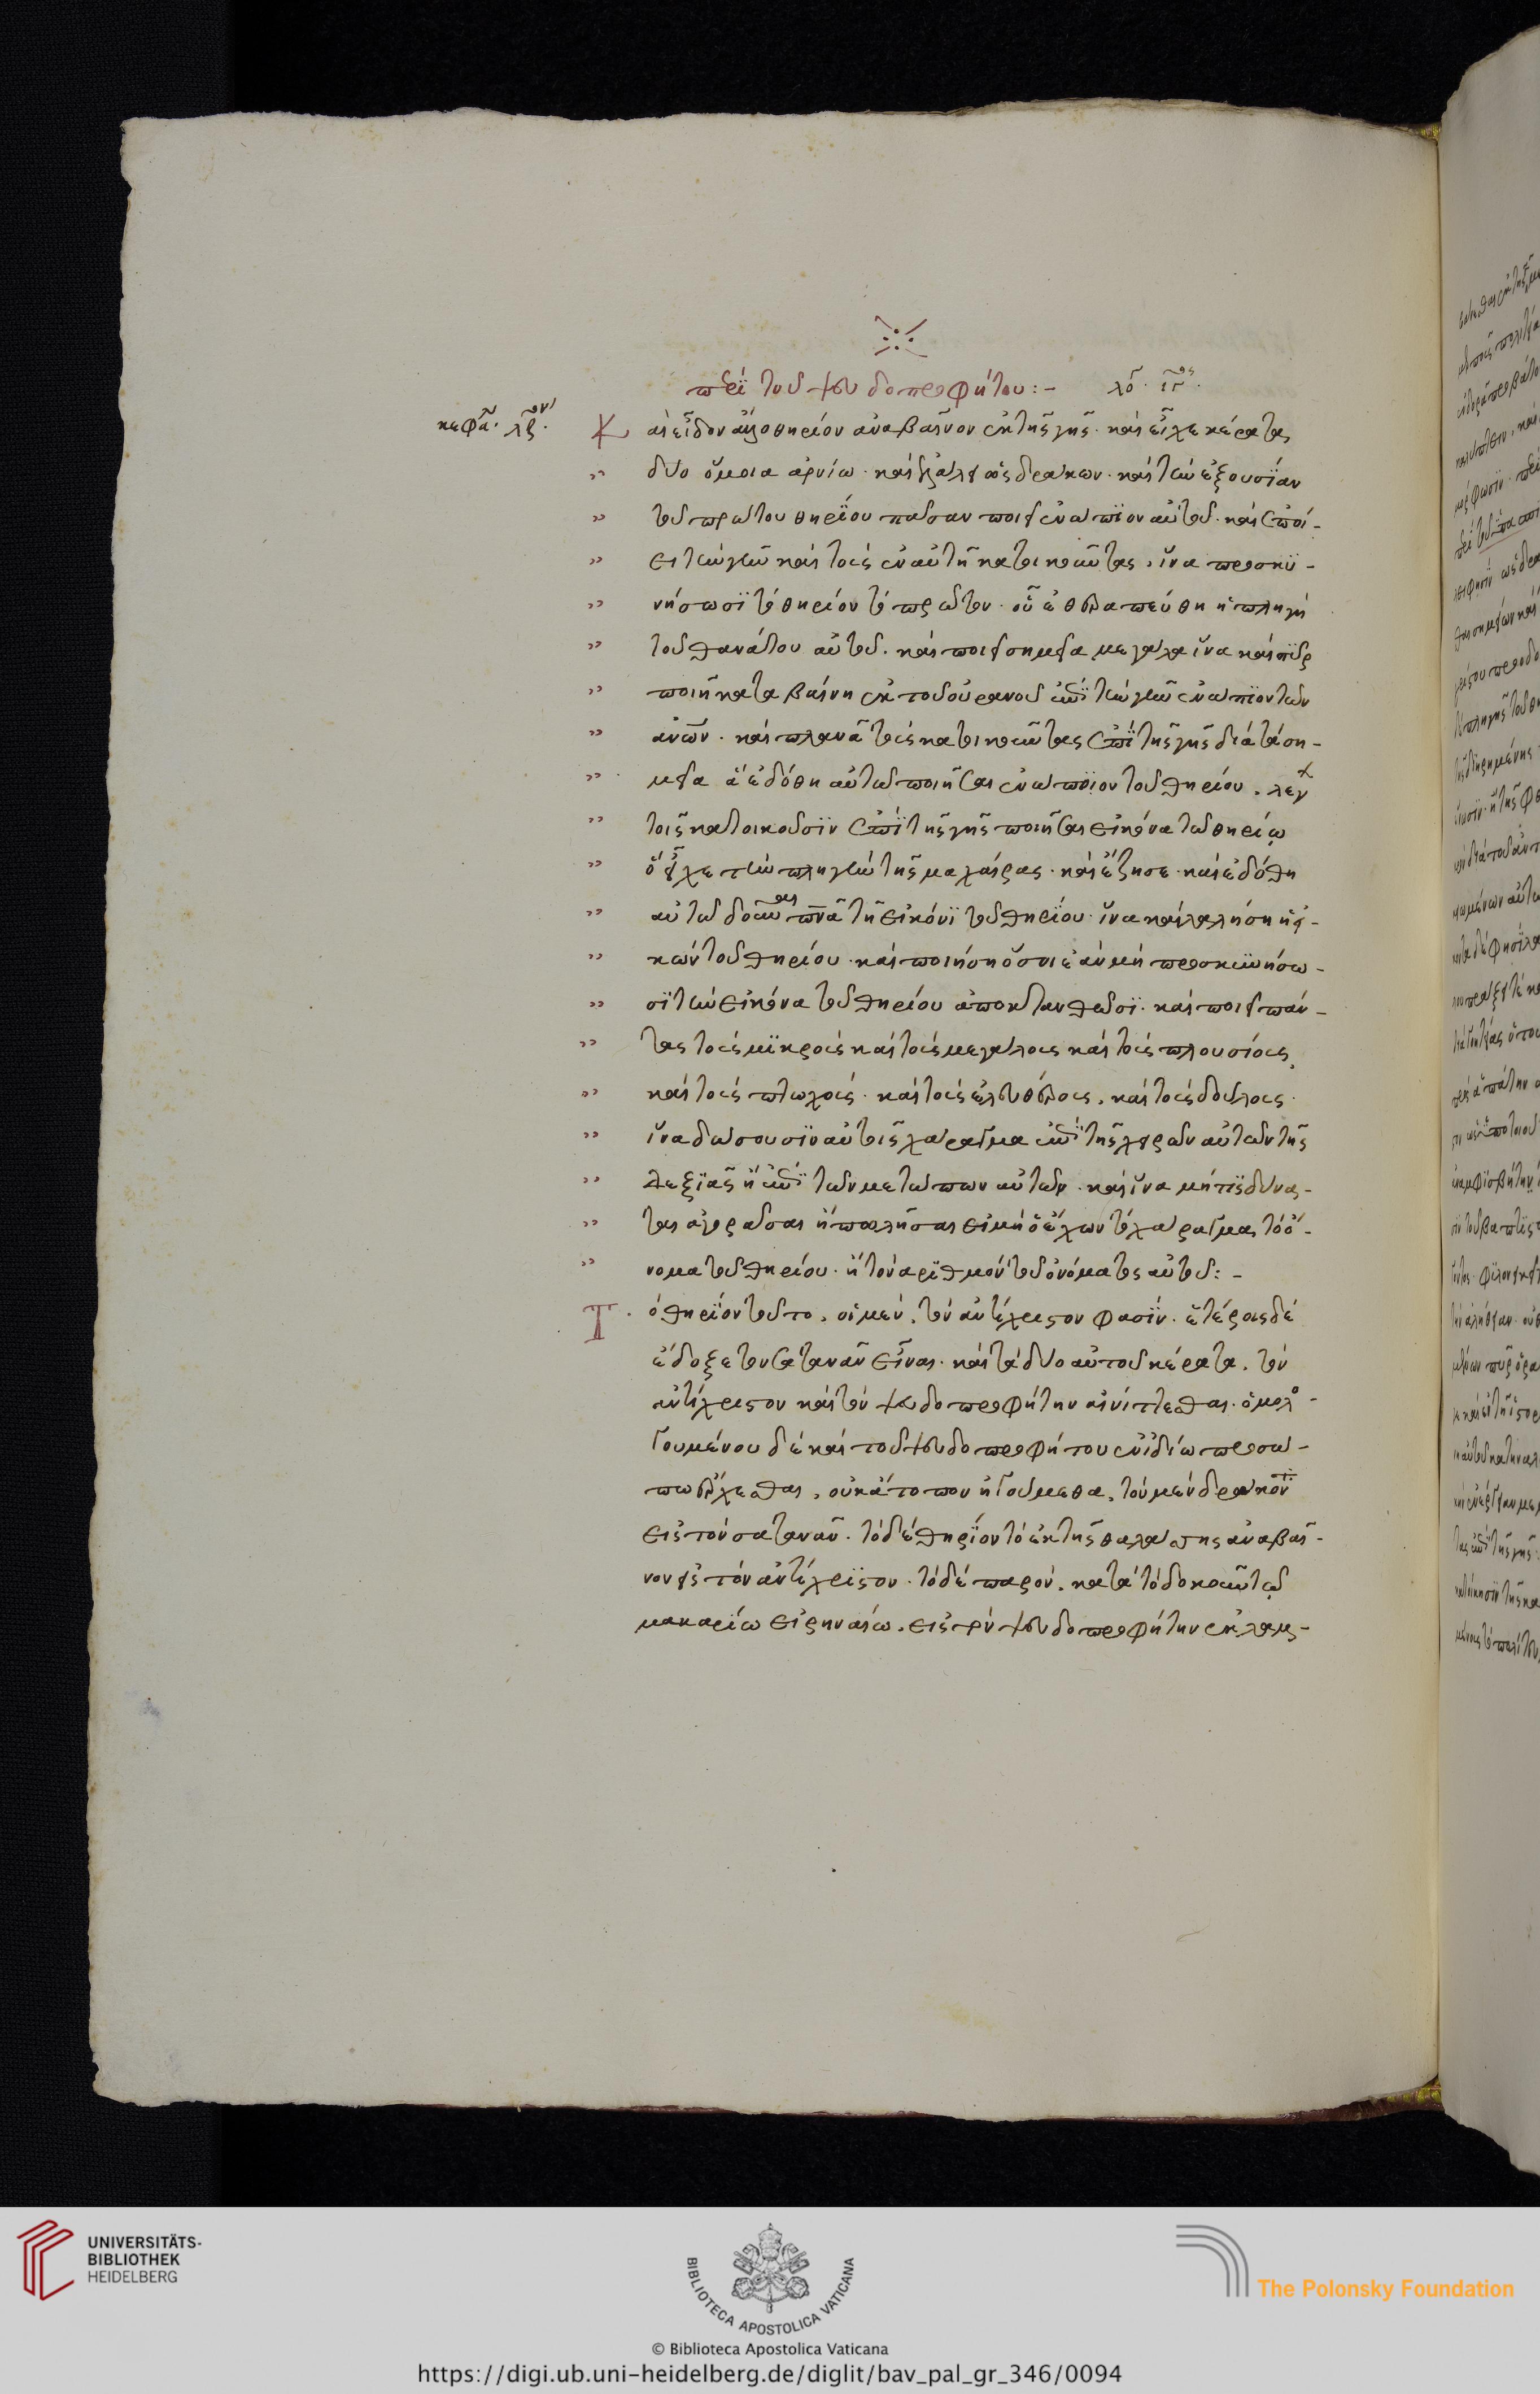 περὶ τοῦ ψευδοπροφήτου:- λό. ιγος.
κεφά. λζον.
Καὶ εἶδον ἄλλο θηρίον ἀναβαῖνον ἐκ τῆς γῆς. καὶ εἶχε κέρατα
δύο ὅμοια ἀρνίω. καὶ ἐλάλει ὡς δράκων. καὶ τὴν ἐξουσίαν
τοῦ πρώτου θηρίου πᾶσαν ποιεῖ ἐνώπιον αὐτοῦ. καὶ ἐποί-
ει τὴν γῆν καὶ τοὺς ἐν αὐτῆ κατοικοῦντας, ἵνα προσκυ-
νήσωσι τὸ θηρίον τὸ πρῶτον. οὗ ἐθεραπεύθη ἡ πληγὴ
τοῦ θανάτου αὐτοῦ. καὶ ποιεῖ σημεῖα μεγάλα ἵνα καὶ πῦρ
ποιῆ καταβαίνη ἐκ τοῦ οὐρανοῦ ἐπὶ τὴν γῆν ἐνώπιον τῶν
ἀνων. καὶ πλανᾶ τοὺς κατοικοῦντας ἐπὶ τῆς γῆς διὰ τὰ ση-
μεῖα ἃ ἐδόθη αὐτῶ ποιῆσαι ἐνώπιον τοῦ θηρίου. λέγ
τοῖς κατοικοῦσιν ἐπὶ τῆς γῆς ποιῆσαι εἰκόνα τῶ θηρίω
ὃ εἶχε τὴν πληγὴν τῆς μαχαίρας. καὶ ἔζησε. καὶ ἐδόθη
αὐτῶ δοῦναι πνα τῆ εἰκόνι τοῦ θηρίου. ἵνα καὶ λαλήση ἡ εἰ-
κὼν τοῦ θηρίου. καὶ ποιήση ὅσοι ἐὰν μὴ προσκυνήσω-
σι τὴν εἰκόνα τοῦ θηρίου ἀποκτανθῶσι. καὶ ποιεῖ πάν-
τας τοὺς μικροὺς καὶ τοὺς μεγάλους καὶ τοὺς πλουσίους,
καὶ τοὺς πτωχούς. καὶ τοὺς ἐλευθέρους, καὶ τοὺς δούλους.
ἵνα δώσουσιν αὐτοῖς χάραγμα ἐπὶ τῆς χειρῶν αὐτῶν τῆς
δεξιᾶς ἢ ἐπὶ τῶν μετώπων αὐτῶν. καὶ ἵνα μή τις δύνα-
ται ἀγοράσαι ἢ πωλῆσαι εἰ μὴ ὁ ἔχων τὸ χάραγμα, τὸ ὄ-
νομα τοῦ θηρίου. ἢ τὸν ἀριθμὸν τοῦ ὀνόματος αὐτοῦ:-
Τὸ θηρίον τοῦτο, οἱ μὲν, τὸν ἀντίχριστον φασίν. ἑτέροις δὲ
ἔδοξε τὸν σατανᾶν εἶναι. καὶ τὰ δύο αὐτοῦ κέρατα, τὸν
ἀντίχριστον καὶ τὸν ψευδοπροφήτην αἰνίττεσθαι. ὁμολο-
γουμένου δὲ καὶ τοῦ ψευδοπροφήτου ἐν ἰδίω προσώ-
πω ἔρχεσθαι, οὐκ ἄτοπον ἡγούμεθα, τὸν μὲν δράκοντ
εἰς τὸν σατανᾶν. τὸ δὲ θηρίον τὸ ἐκ τῆς θαλάττης ἀναβαῖ-
νον εἰς τὸν ἀντίχριστον. τὸ δὲ παρὸν, κατὰ τὸ δοκοῦν τῶ
μακαρίω εἰρηναίω, εἰς τὸν ψευδοπροφήτην ἐκλαμ-
UNIVERSITÄTS-
BIBLIOTHEK
HEIDELBERG
BIBLIOTECA APOSTOLICA VATICANA
The Polonsky Foundation
© Biblioteca Apostolica Vaticana
https://digi.ub.uni-heidelberg.de/diglit/bav_pal_gr_346/0094